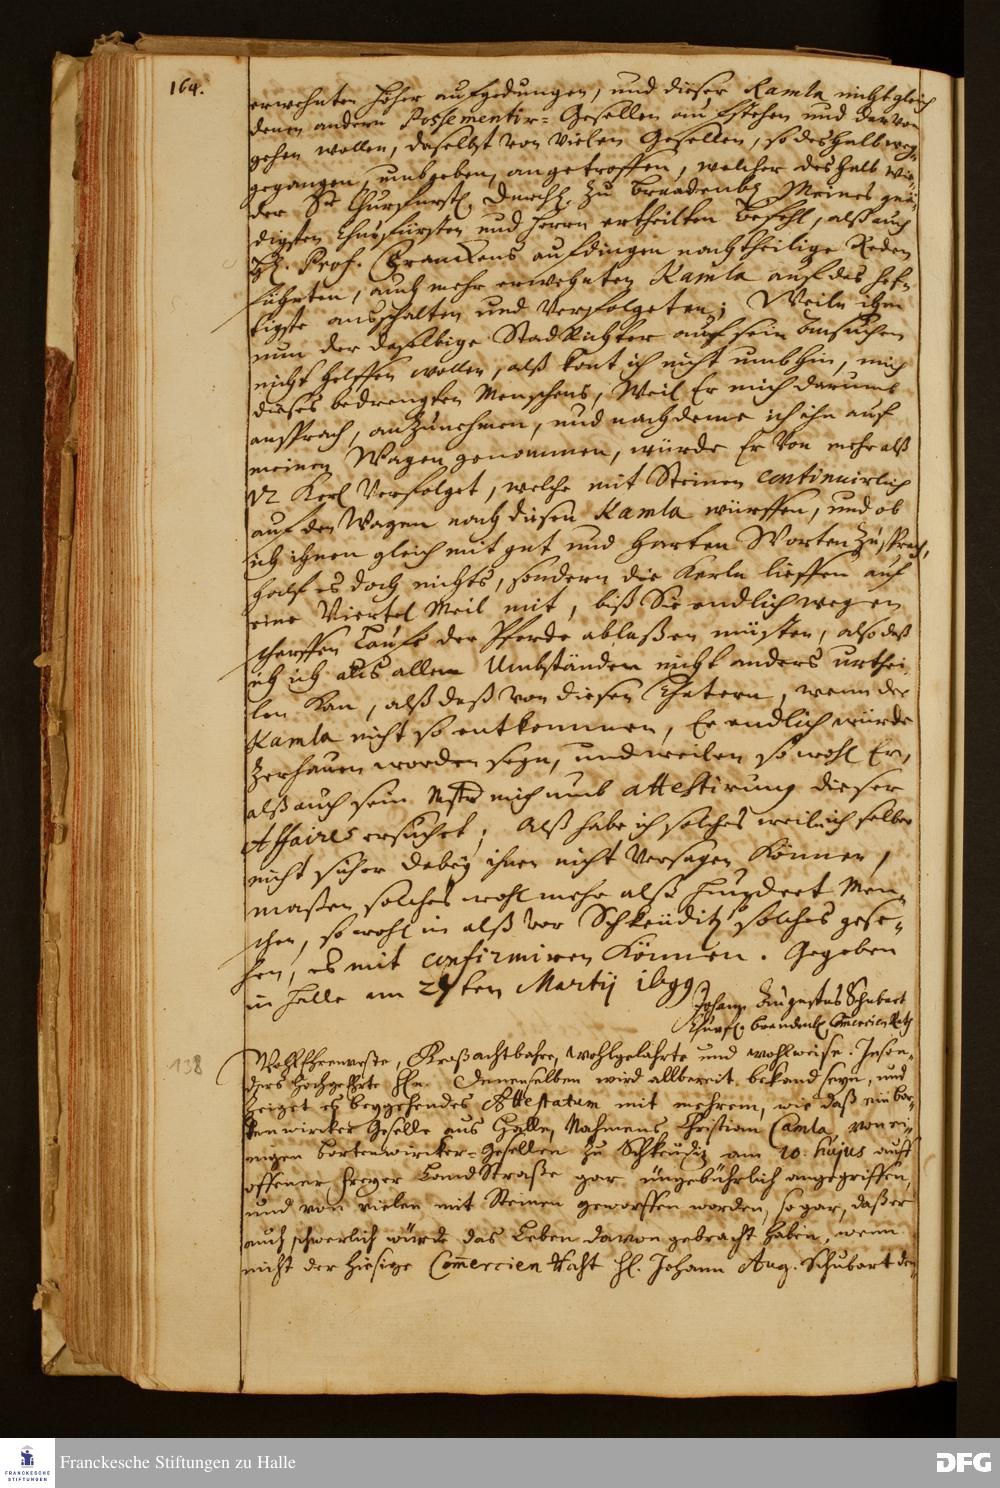 164.
erwehnten Höher aufgedungen, und dieser Kamla nicht gleich
denen andern Possementir-Gesellen aufstehen und davon
gehen wollen, daselbst von vielen Gesellen, so deshalb weg-
gegangen, umbgeben, angetroffen, welcher deshalb wie-
der Sr Churfürstl. Durchl. zu Brandenbg Meines gnä-
digsten Churfürsten und Herrn ertheilten Befehl, alß auch
H. Prof. Franckens aufdingen nachtheilige Reden
führten, auch mehr erwehnten Kamla auf das hef-
tigste ausschalten und verfolgeten; Weiln ihm
nun der daselbige StadtRichter auf sein Ansuchen
nicht helffen wollen, alß kont ich nicht umbhin, mich
dieses bedrengten Menschens, weil Er mich darumb
ansprach, anzunehmen, und nachdeme ich ihn auf
meinen Wagen genommen, würde Er von mehr alß
12 Kerl verfolget, welche mit Steinen continuirlich
auf den Wagen nach diesen Kamla würffen, und ob
ich ihnen gleich mit gut und harten Worten zusprach,
half es doch nichts, sondern die Kerln lieffen auf
eine Viertel Meil mit, biß Sie endlich wegen
scharffen Laufs der Pferde ablaßen müsten, also daß
ich ich aus allen Umbständen nicht anders urthei-
len kan, alß daß von diesen Thätern, wenn der
Kamla nicht so entkommen, Er endlich würde
zerhauen worden seyn, und weilen so wohl Er,
alß auch sein Mstr mich umb attestirung dieser
Affaires ersuchet; Alß habe ich solches weil ich selber
nicht sicher dabey ihnen nicht versagen können,
maßen solches wohl mehr alß hundert Men-
schen, so wohl in alß vor Schkeuditz solches gese-
hen, es mit confirmiren können. Gegeben
in Halle am 24ten Martij 1699.
Johann Augustus Schubart
Churf. Brandenb. Commercien Rath
138
WohlEhrenveste, Großachtbahre, wohlgelahrte und wohlweise. Inson-
ders hochgeehrte HHn. Denenselben wird allbereit bekand seyn, und
zeiget es beygehendes Attestatum mit mehrem, wie daß ein Bor-
tenwircker Geselle aus Halle, Nahmens Christian Camla, von ei-
nigen bortenwürcker-Gesellen zu Schkeuditz am 20. hujus auff
offener freyer LandStraße gar ungebührlich angegriffen,
und von vielen mit Steinen geworffen worden, so gar, daß er
auch schwerlich würde das Leben davon gebracht haben, wenn
nicht der hiesige Commercien Raht H. Johann Aug. Schubart den-
Franckesche Stiftungen zu Halle
FRANCKESCHE
STIFTUNGEN
DFG